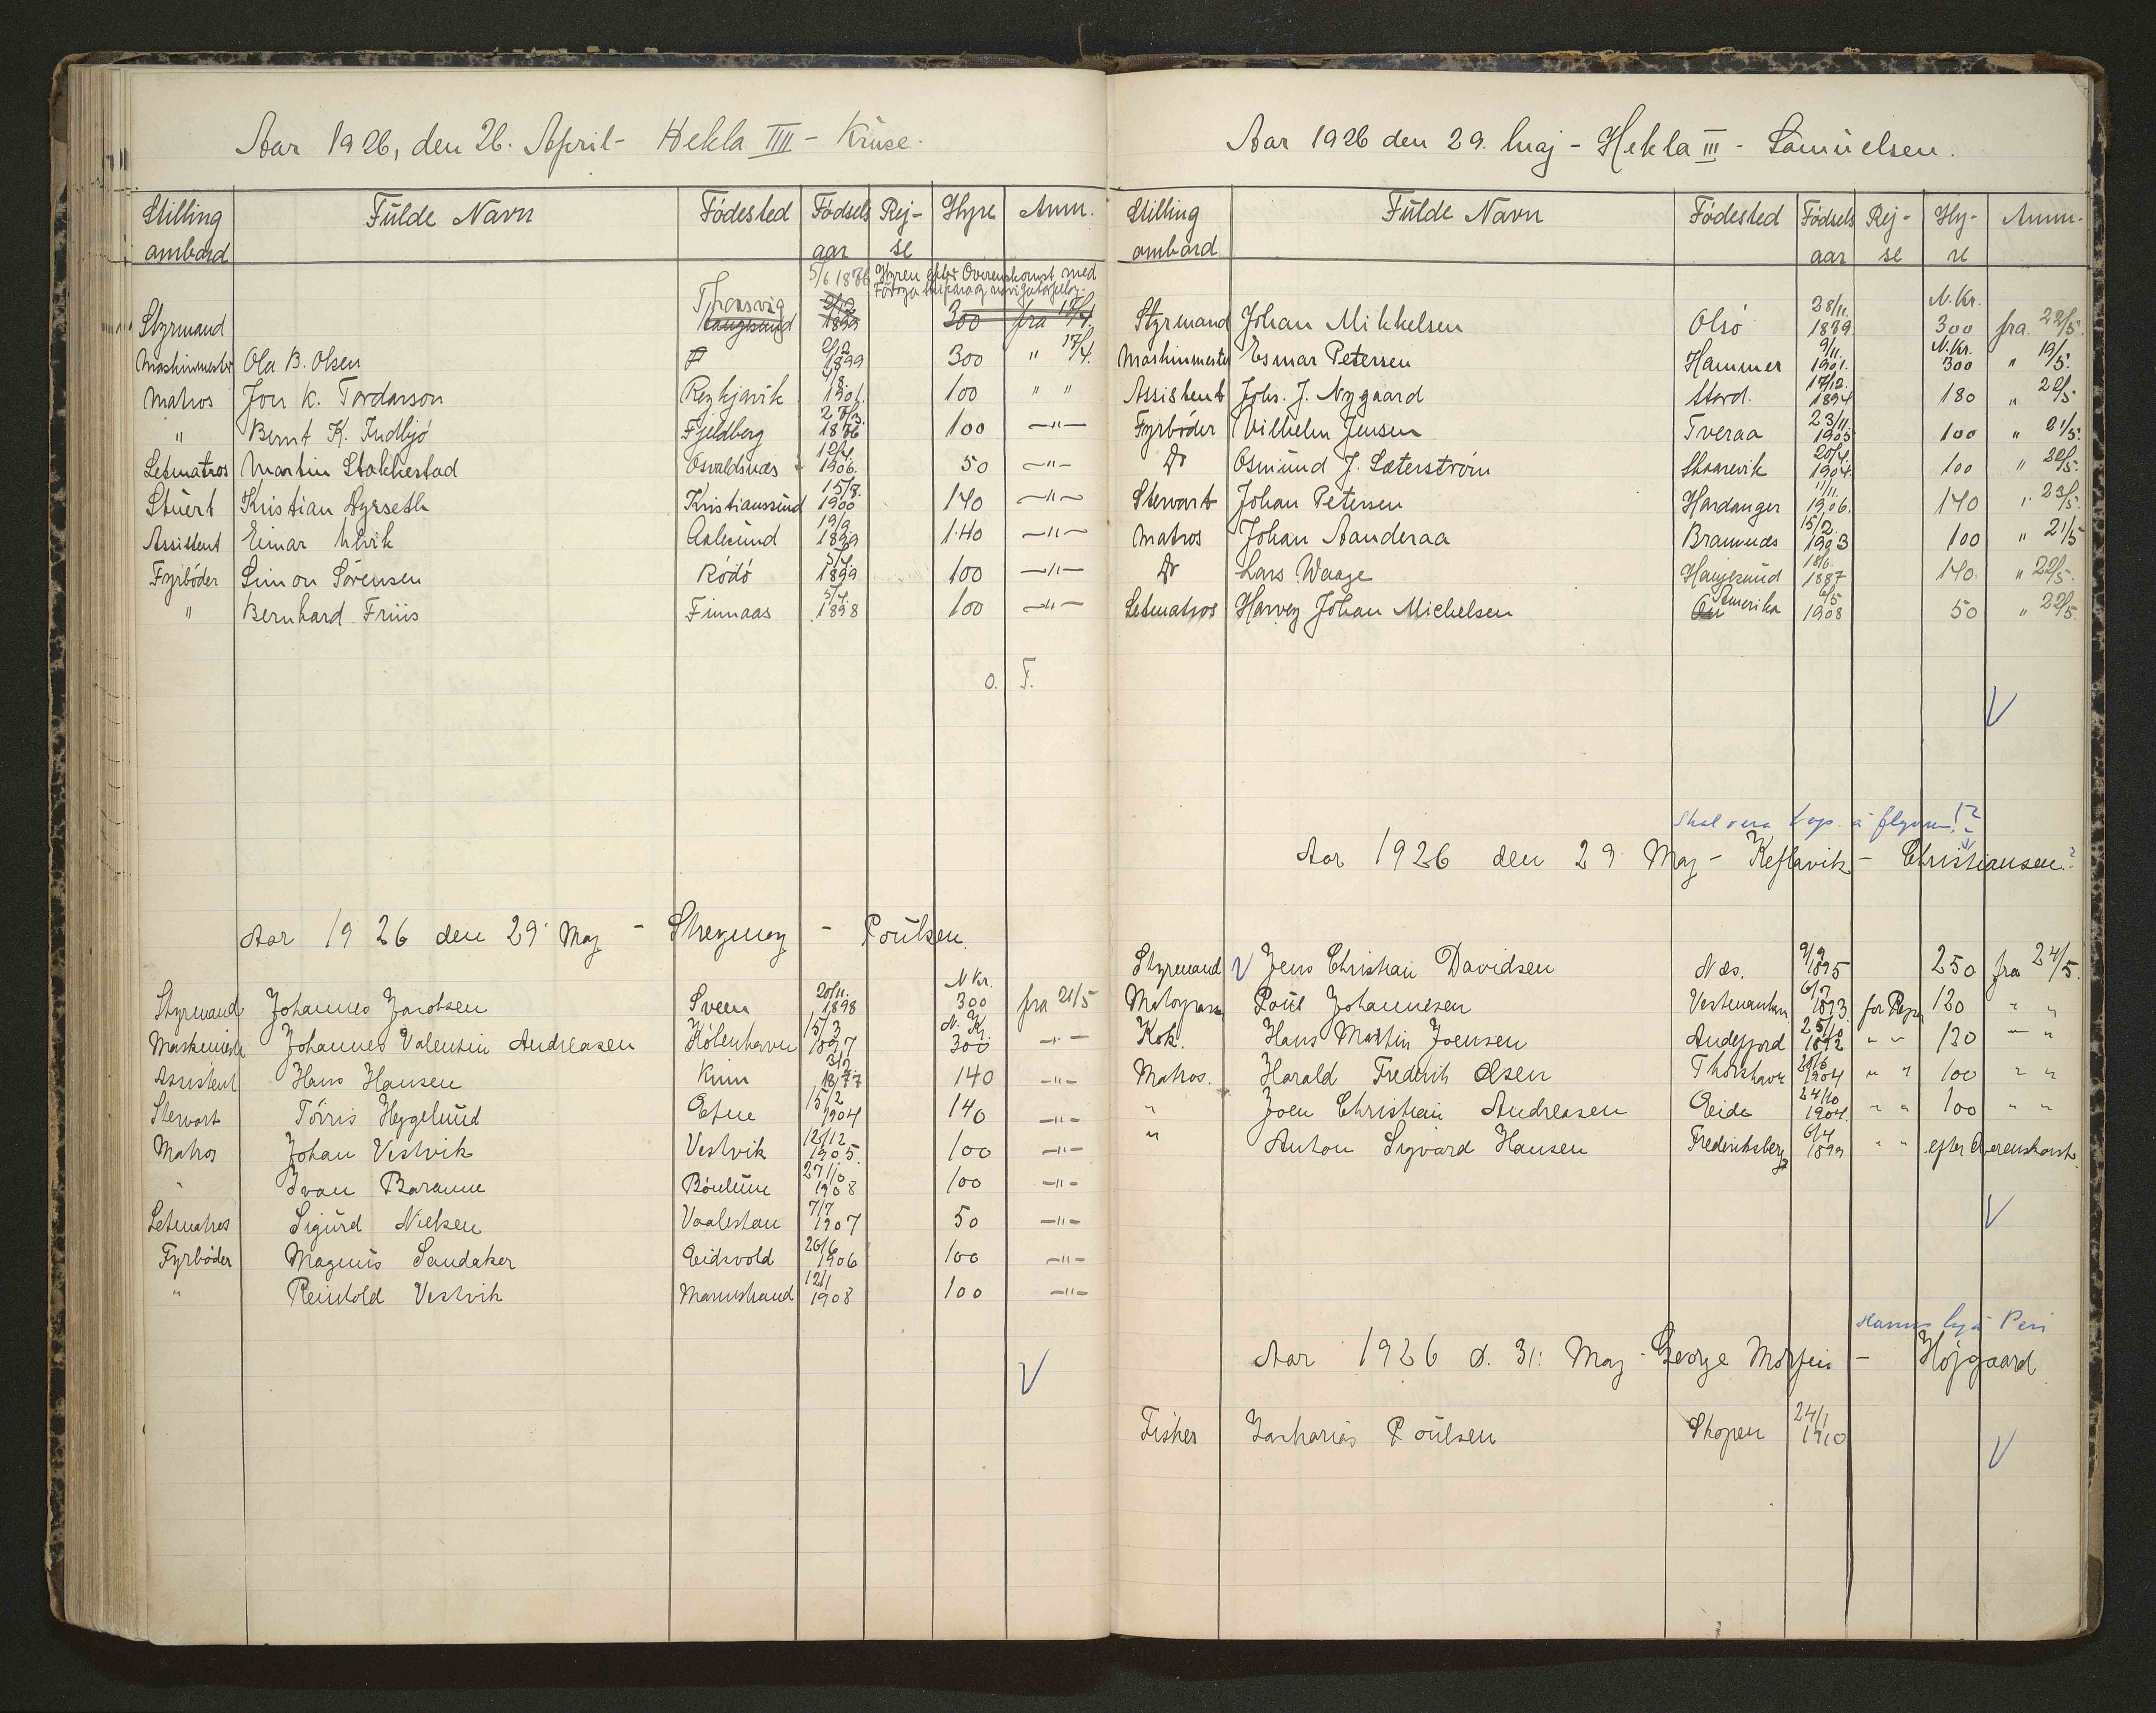 Aar 1926, den 26. April - Hekla IIII - Krüse.
Stilling ambord Fülde Navn Födested Födsels aar Rej-se Hyre Anm.
5/6 1876 Hyren efter Overenskomst med
Styrmand Thorsvig 2/12 1899 300 fra 17/4.
Maskinmester Ola B. Olsen 2/12 1899 300 " 17/4.
Matros Jon K. Tordarson Reykjavik 4/8. 1901. 100 " "
" Bernt K. Indbjö Fjeldberg 27/3. 1876 100 —"—
Letmatros Martin Stakkestad Osvaldsnæs 12/4. 1906. 50 —"—
Stüert Kristian Dyrseth Kristianssünd 15/8. 1900 140 —"—
Assistent Einar Ulvik Aalesünd 19/9 1899 140 —"—
Fyrböder Simon Sörensen Rödö 5/4. 1899 100 —"—
" Bernhard Friis Finnaas 5/4. 1898 100 —"—
o. F.
Aar 1926 den 29' Maj - Streymoy - Poülsen.
Styrmand Johannes Jacobsen Sveen 20/11. 1898 N Kr. 300 fra 21/5
Maskinmester Johannes Valentin Andreasen Köbenhavn 15/3 1897 N. Kr. 300 —"—
Assistent Hans Hansen Kinn 3/2 1877 140 —"—
Stewart Törris Heggelünd Etne 15/2 1904 140 —"—
Matros Johan Vestvik Vestvik 12/12 1905. 100 —"—
" Ivan Baranne 27/10 1908 100 —"—
Letmatros Sigürd Nielsen 7/7 1907 50 —"—
Fyrböder Magnüs Sandaker Eidsvold 26/6 1906 100 —"—
" Reinhold Vestvik 12/1 1908 100 —"—
V
Aar 1926 den 29. Maj - Hekla III - Samüelsen.
Stilling ambord Fülde Navn Födested Födsels aar Rej-se Hy-re Anm.
Styrmand Johan Mikkelsen Olsö 28/11. 1889. N. Kr. 300 fra 22/5.
Maskinmester Esmar Petersen Hammer 9/11. 1901. N. Kr. 300 " 19/5.
Assistent Johs. J. Nygaard Stord. 17/12. 1894 180 " 22/5
Fyrböder Vilhelm Jensen Tveraa 23/11. 1905 100 " 21/5.
Do Osmünd J. Sæterström Skaanevik 20/4. 1904. 100 " 22/5.
Stewart Johan Petersen Hardanger 11/11. 1906. 140 " 23/5.
Matros Johan Aanderaa Bramnæs 15/2. 1903 100 " 21/5
Do Lars Waage Haugesünd 18/6. 1887 140. " 22/5.
Letmatros Harvey Johan Michelsen Amerika 6/5 1908 50 " 22/5.
V
Skal vera kap. á flyvu !?
Aar 1926 den 29' Maj - Keflavik - Christiansen.?
Styrmand V Jens Christian Davidsen Næs. 9/9 1895 250 fra 24/5.
Motorpasser Poül Johannesen 6/7 1893. for Rejsen 120 " "
Kok. Hans Martin Joensen Andefjord 25/10 1892 " " 120 " "
Matros. Harald Frederik Olsen Thorshavn 20/6 1904 " " 100 " "
" Joen Christian Andreasen Eide 24/10 1904 " " 100 " "
" Anton Sigvard Hansen Frederiksberg 6/4 1899 " " efter Overenskomst.
V
Hanus hjá Peri
Aar 1926 d. 31: Maj - George Morfin - Höjgaard
Fisker Zacharias Poülsen Skopen 24/1 1910
V